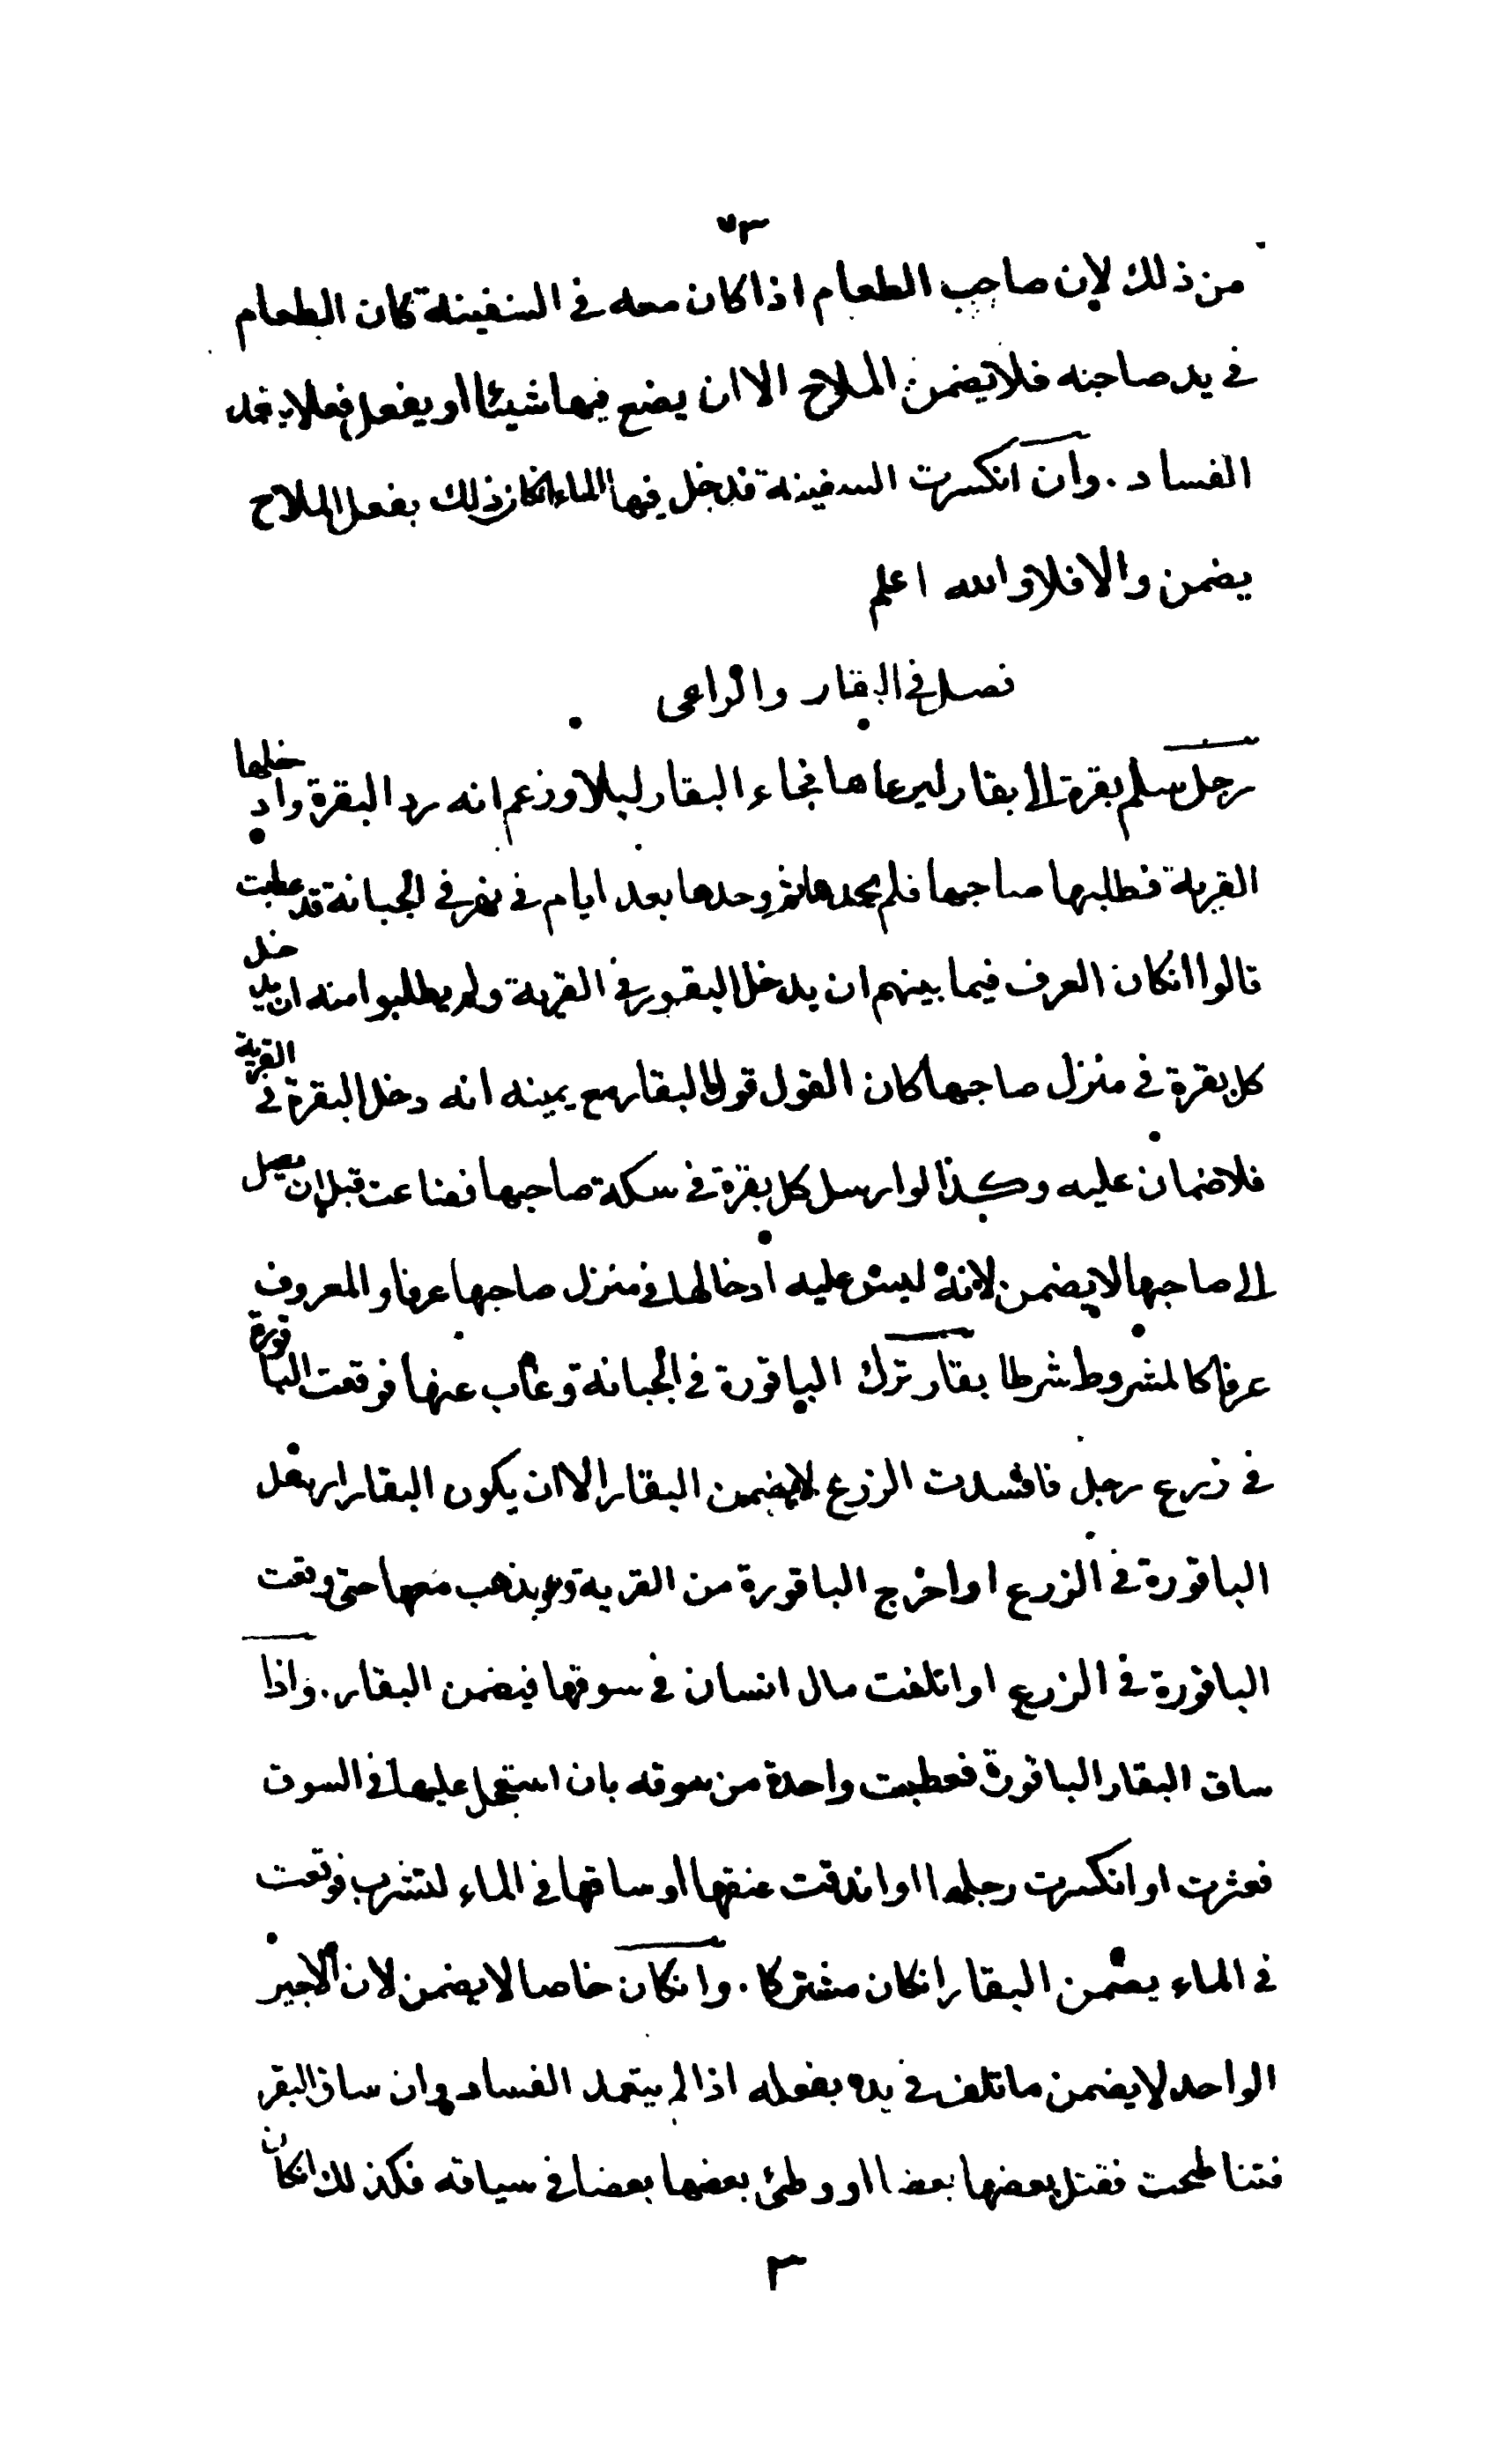 ٧٣
من ذلك لان صاحب الطعام اذا كان معه في السفينة كان الطعام
في يد صاحبه فلا يضمن الملاح الا ان يضع فيها شيئا او يفعل فعلا يتعمد
الفساد . وان انكسرت السفينة فدخل فيها الماء انكان ذلك بفعل الملاح
يضمن والا فلا والله اعلم
فصل في البقار والراعى
رجل سلم بقرة الى بقار ليرعاها فجاء البقار ليلا وزعم انه رد البقرة وادخلها
القرية فطلبها صاحبها فلم يجدها ثم وجدها بعد ايام في نهر في الجبانة قد عطبت
قالوا انكان العرف فيما بينهم ان يدخل البقور في القرية ولم يطلبوا منه ان يدخل
كل بقرة في منزل صاحبها كان القول قول البقار مع يمينه انه دخل البقرة في القرية
فلا ضمان عليه وكذا لو ارسل كل بقرة في سكة صاحبها فضاعت قبل ان يصل
الى صاحبها لا يضمن لانه ليس عليه ادخالها في منزل صاحبها عرفا والمعروف
عرفا كالمشروط شرطا بقار ترك الباقورة في الجبانة وغاب عنها فوقعت الباقورة
في زرع رجل فافسدت الزرع لا يضمن البقار الا ان يكون البقار ارسل
الباقورة في الزرع او اخرج الباقورة من القرية وهو يذهب معها حتى وقعت
الباقورة في الزرع او اتلفت مال انسان في سوقها فيضمن البقار . واذا
ساق البقار الباقورة فعطبت واحدة من سوقه بان استعجل عليها في السوق
فعثرت او انكسرت رجلها او اندقت عنقها او ساقها في الماء لتشرب فوقعت
في الماء يضمن البقار انكان مشتركا . وانكان خاصا لا يضمن لان الاجير
الواحد لا يضمن ما تلف في يده بفعله اذا لم يتعمد الفساد وان ساق البقر
فتناطحت فقتل بعضها بعضا او وطئ بعضها بعضا في سياقه فكذلك انكان
٣